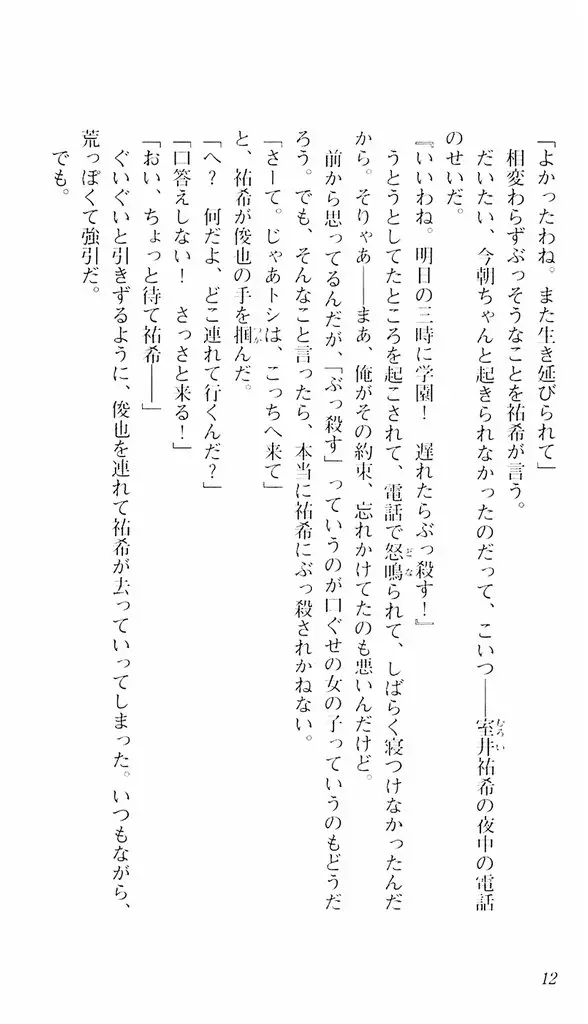 「よかったわね。また生き延びられて」
相変わらずぶっそうなことを祐希が言う。
だいたい、今朝ちゃんと起きられなかったのだって、こいつ――室井祐希の夜中の電話
のせいだ。
『いいわね。明日の三時に学園！　遅れたらぶっ殺す！』
うとうとしてたところを起こされて、電話で怒鳴られて、しばらく寝つけなかったんだ
から。そりゃあ――まあ、俺がその約束、忘れかけてたのも悪いんだけど。
前から思ってるんだが、「ぶっ殺す」っていうのが口ぐせの女の子っていうのもどうだ
ろう。でも、そんなこと言ったら、本当に祐希にぶっ殺されかねない。
「さーて。じゃあトシは、こっちへ来て」
と、祐希が俊也の手を掴んだ。
「へ？　何だよ、どこ連れて行くんだ？」
「口答えしない！　さっさと来る！」
「おい、ちょっと待て祐希――」
ぐいぐいと引きずるように、俊也を連れて祐希が去っていってしまった。いつもながら、
荒っぽくて強引だ。
でも。
むろい
どな
つか
12